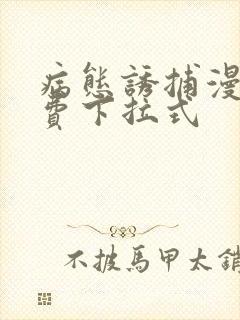 病態誘捕漫
費下拉式
不披馬甲太銷